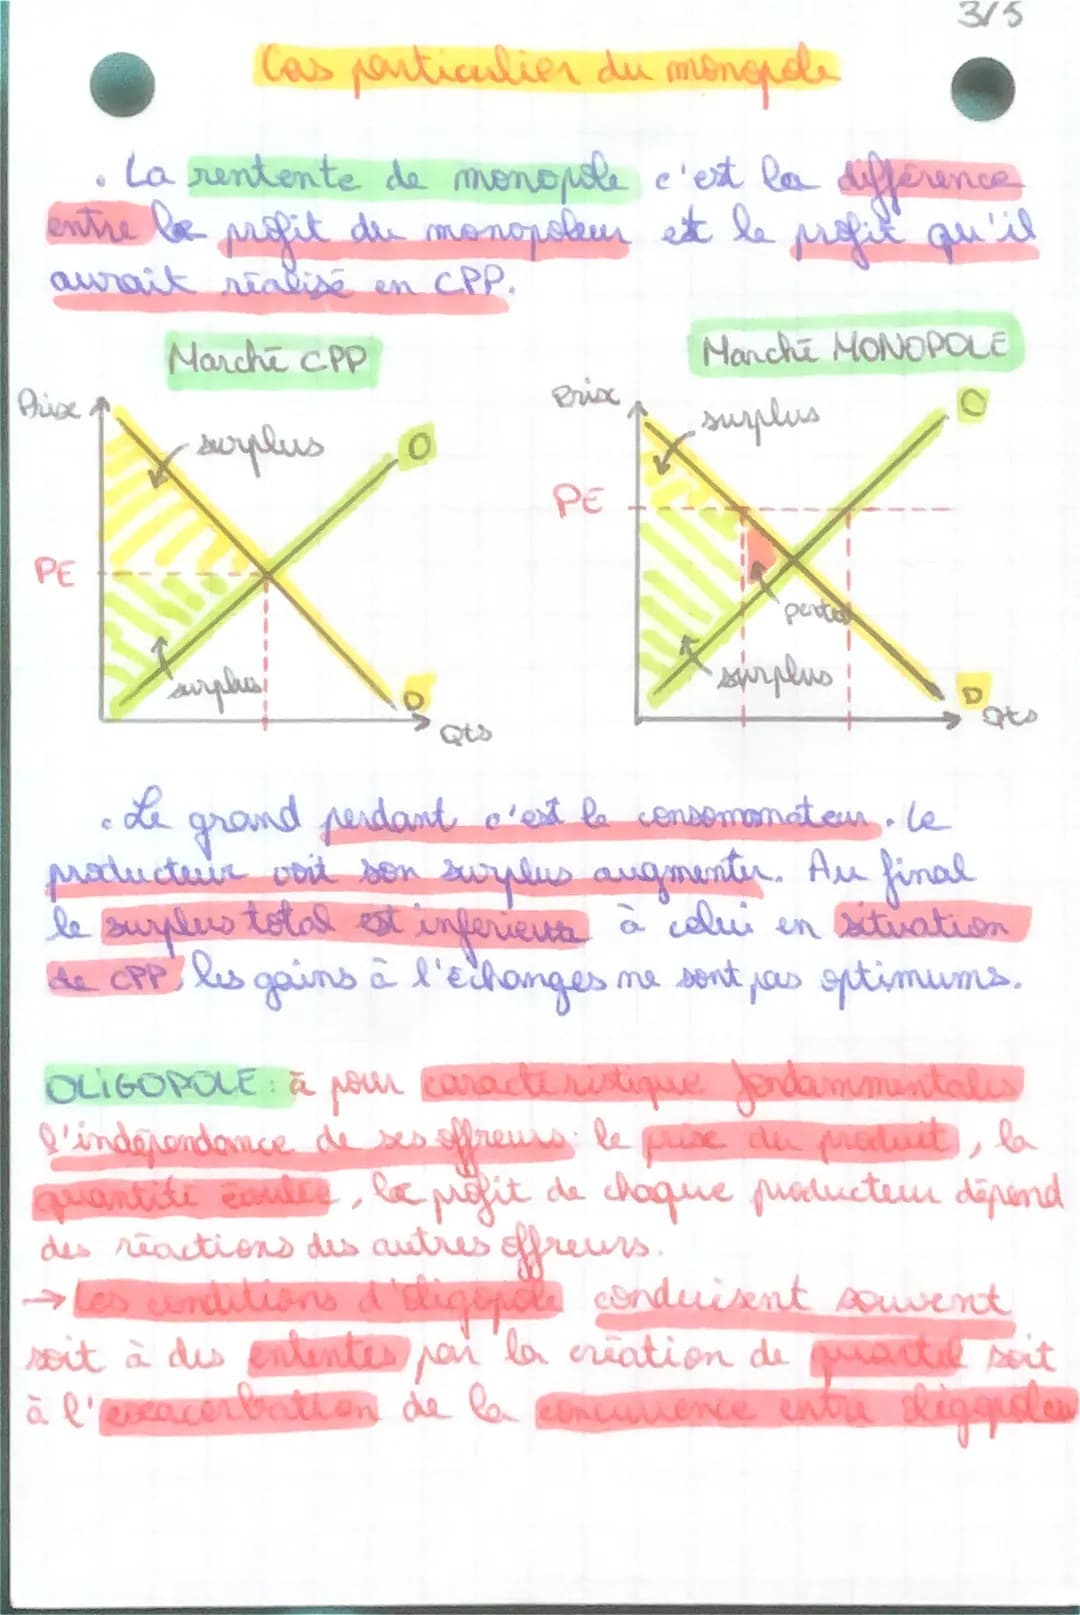 3/5
Cas particulier du monopole
. La rentente de monopole c'est la différence
entre le profit du monopoleur et le profit qu'il
aurait réalisé en CPP.
Marché CPP
Marché MONOPOLE
Prix
surplus
O
PE
surplus
D
Qts
Prix
surplus
O
PE
perte
surplus
D
Qts
. Le grand perdant c'est le consommateur. Le
producteur voit son surplus augmenter. Au final
le surplus total est inférieur à celui en situation
de CPP, les gains à l'échanges ne sont pas optimums.
OLIGOPOLE : à pour caractéristique fondammentales
l'indépendance de ses offreurs : le prix du produit, la
quantité écoulée, le profit de chaque producteur dépend
des réactions des autres offreurs.
→ Les conditions d'oligopole conduisent souvent
soit à des ententes par la création de quartel soit
à l'exacerbation de la concurrence entre oligopoleu